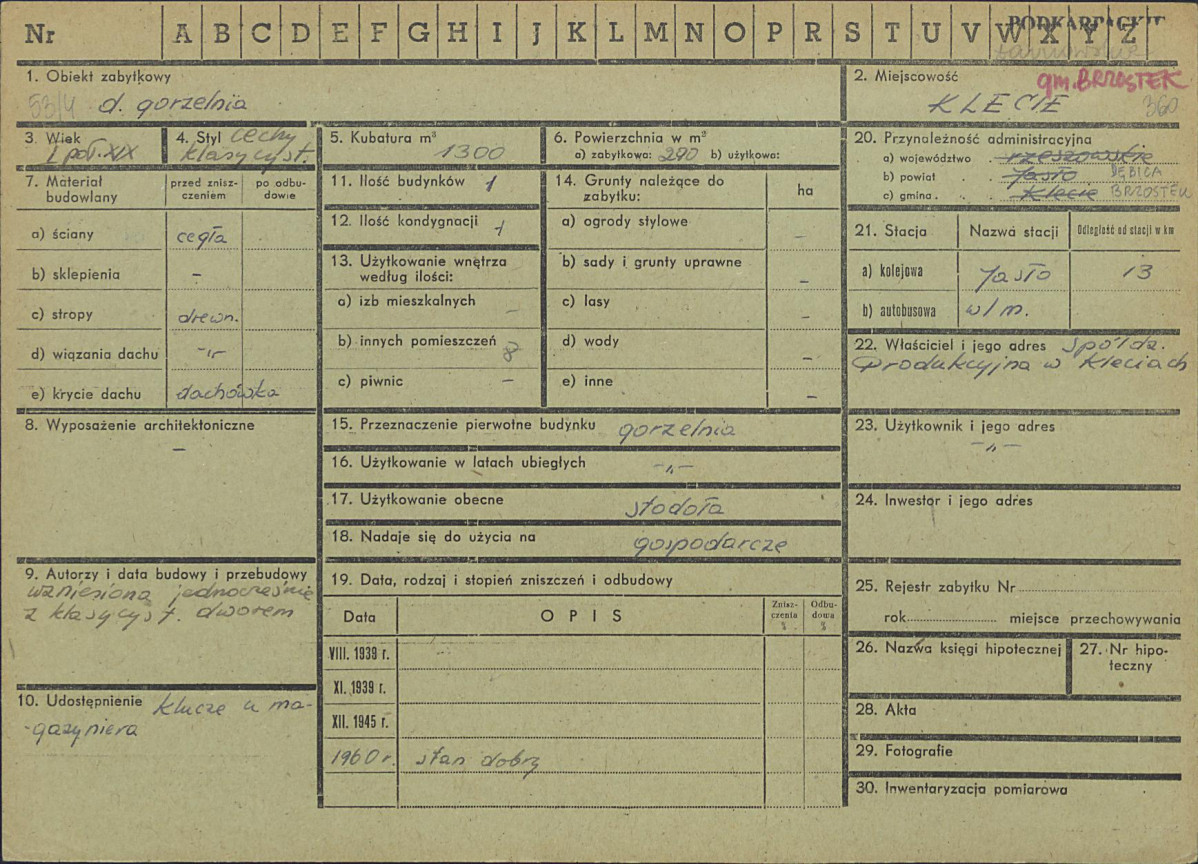 Nr A B C D E F G H I J K L M N O P R S T U V W X Y Z
PODKARPACKIE
1. Obiekt zabytkowy
53/4 d. gorzelnia
2. Miejscowość
gm. BRZOSTEK
KLECIE
360
3. Wiek
I poł. XIX
4. Styl cechy
klasycyst.
5. Kubatura m³
1300
6. Powierzchnia w m²
a) zabytkowa: 290 b) użytkowa:
7. Materiał budowlany
przed zniszczeniem
po odbudowie
a) ściany cegła
b) sklepienia –
c) stropy drewn.
d) wiązania dachu -„-
e) krycie dachu dachówka
8. Wyposażenie architektoniczne
–
9. Autorzy i data budowy i przebudowy
wzniesiona jednocześnie
z klasycyst. dworem
10. Udostępnienie klucze u ma-
-gazyniera
11. Ilość budynków 1
12. Ilość kondygnacji 1
13. Użytkowanie wnętrza
według ilości:
a) izb mieszkalnych –
b) innych pomieszczeń 8
c) piwnic –
14. Grunty należące do
zabytku:
ha
a) ogrody stylowe –
b) sady i grunty uprawne –
c) lasy –
d) wody –
e) inne –
15. Przeznaczenie pierwotne budynku gorzelnia
16. Użytkowanie w latach ubiegłych -„-
17. Użytkowanie obecne stodoła
18. Nadaje się do użycia na gospodarcze
19. Data, rodzaj i stopień zniszczeń i odbudowy
Data OPIS Zniszczenia % Odbudowa %
VIII. 1939 r.
XI. 1939 r.
XII. 1945 r.
1960 r. stan dobry
20. Przynależność administracyjna
a) województwo . rzeszowskie
b) powiat . . Jasło DĘBICA
c) gmina . . Klecie BRZOSTEK
21. Stacja Nazwa stacji Odległość od stacji w km
a) kolejowa Jasło 13
b) autobusowa w/m.
22. Właściciel i jego adres Spółdz.
Produkcyjna w Kleciach
23. Użytkownik i jego adres
-„-
24. Inwestor i jego adres
25. Rejestr zabytku Nr
rok miejsce przechowywania
26. Nazwa księgi hipotecznej
27. Nr hipo-
teczny
28. Akta
29. Fotografie
30. Inwentaryzacja pomiarowa